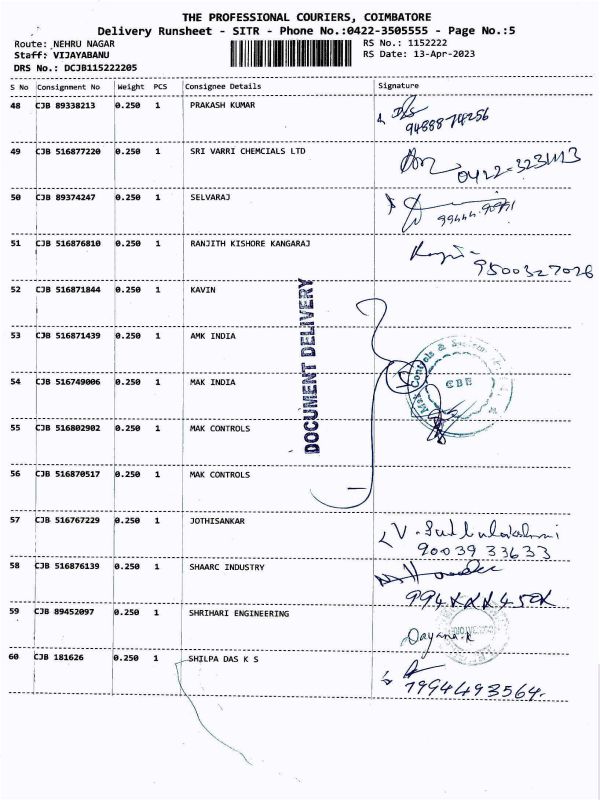 THE PROFESSIONAL COURIERS, COIMBATORE
Delivery Runsheet - SITR - Phone No.:0422-3505555 - Page No.:5
Route: NEHRU NAGAR RS No.: 1152222
Staff: VIJAYABANU RS Date: 13-Apr-2023
DRS No.: DCJB115222205
S No Consignment No Weight PCS Consignee Details Signature
48 CJB 89338213 0.250 1 PRAKASH KUMAR
94888 74256
49 CJB 516877220 0.250 1 SRI VARRI CHEMCIALS LTD
50 CJB 89374247 0.250 1 SELVARAJ
51 CJB 516876810 0.250 1 RANJITH KISHORE KANGARAJ
9500327026
52 CJB 516871844 0.250 1 KAVIN
DOCUMENT DELIVERY
53 CJB 516871439 0.250 1 AMK INDIA
54 CJB 516749006 0.250 1 MAK INDIA
CBE
55 CJB 516802902 0.250 1 MAK CONTROLS
56 CJB 516870517 0.250 1 MAK CONTROLS
57 CJB 516767229 0.250 1 JOTHISANKAR
90039 33633
58 CJB 516876139 0.250 1 SHAARC INDUSTRY
59 CJB 89452097 0.250 1 SHRIHARI ENGINEERING
Dayana.K
60 CJB 181626 0.250 1 SHILPA DAS K S
7994493564.